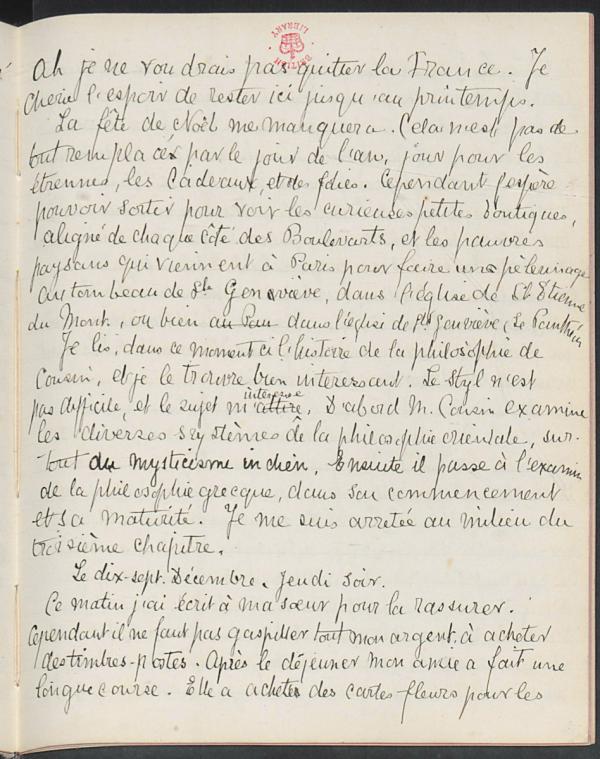 BRITISH LIBRARY
Ah je ne voudrais pas quitter la France. Je
cherie l'espoir de rester ici jusqu'au printemps.
La fête de Noël me manquera. Cela n'est pas de
tout remplacés par le jour de l'an, jour pour les
étrennes, les Cadeaux, et des folies. Cependant j'espère
pouvoir sortir pour voir les curieuses petites boutiques,
aligné de chaque côté des Boulevarts, et les pauvres
paysans qui viennent à Paris pour faire une pèlerinage
au tombeau de Ste Geneviève, dans l'église de St Etienne
du Mont, ou bien au Pan dans l'eglise de Ste Geneviève (Le Panthéon
Je lis, dans ce moment ci l'histoire de la philosophie de
Cousin, et je le trouve bien interessant. Le Styl n'est
interesse
pas difficile, et le sujet m'attire. D'abord M. Cousin examine
les diverses systèmes de la philosophie orientale, sur-
tout du mysticisme indien, Ensuite il passe à l'examin
de la philosophie grecque, dans son commencement
et sa maturité. Je me suis arretée au milieu du
troisième chapitre.
Le dix-sept. Décembre. Jeudi Soir.
Ce matin j'ai écrit à ma sœur pour la rassurer.
Cependant il ne faut pas gaspiller tout mon argent à acheter
des timbres-postes. Après le déjeuner mon amie a fait une
longue course. Elle a acheter des cartes-fleurs pour les